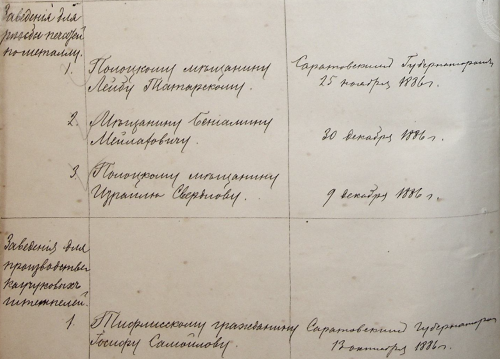 Заведенія для
рѣзьбы печатей
по металлу.
1. Полоцкому мѣщанину
Лейбу Татарскому.
Саратовскимъ Губернаторомъ
25 ноября 1886 г.
2. Мѣщанину Беніамину
Мейлаховичу.
30 декабря 1886 г.
3. Полоцкому мѣщанину
Израилю Свердлову.
9 декабря 1886 г.
Заведенія для
производства
каучуковыхъ
штемпелей.
1. Тифлисскому гражданину
Іосифу Самойлову.
Саратовскимъ Губернаторомъ
13 октября 1886 г.